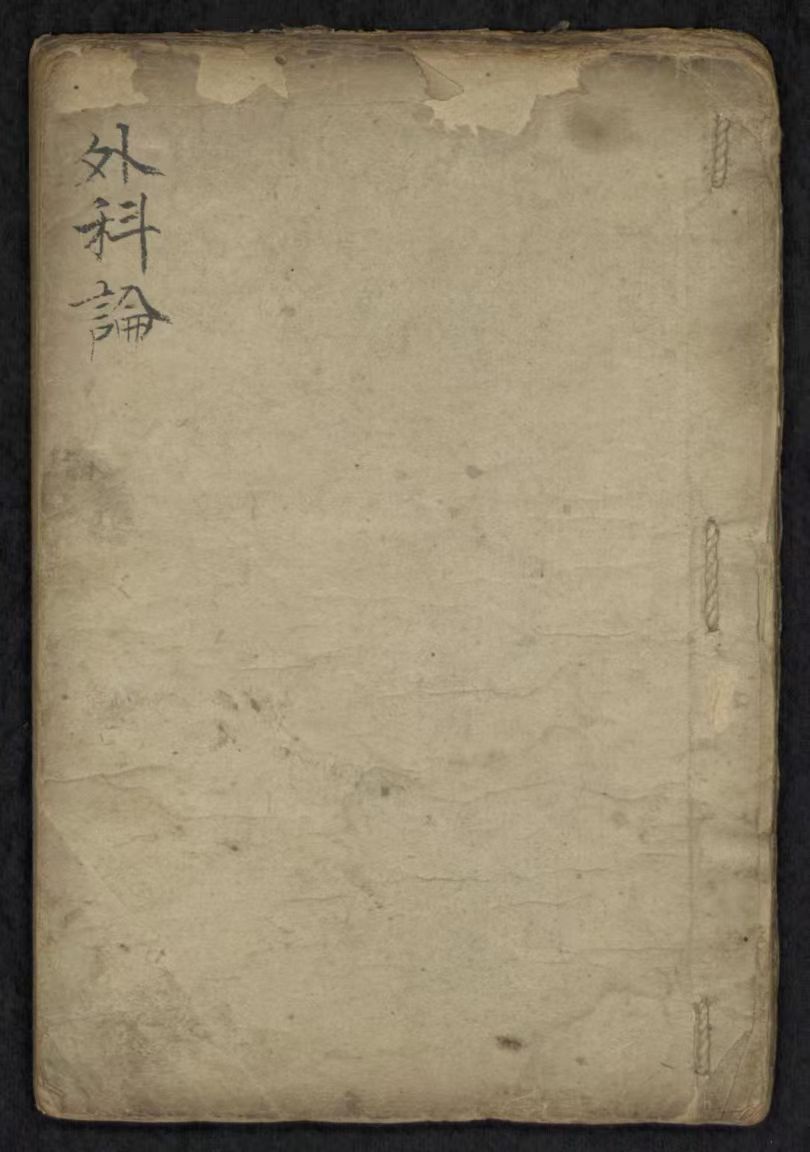 外科論